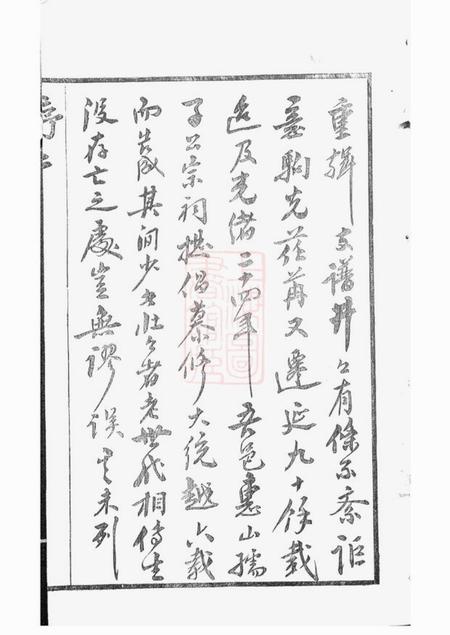 重輯 支譜井々有條不紊詎
意駒光荏苒又遷延九十餘載
迨及光緒二十四年 吾邑惠山孺
子公宗祠撚倡纂修大統越六載
而告成其間少者壯々者老世代相傳生
沒存亡之處豈無謬誤 其未列
序